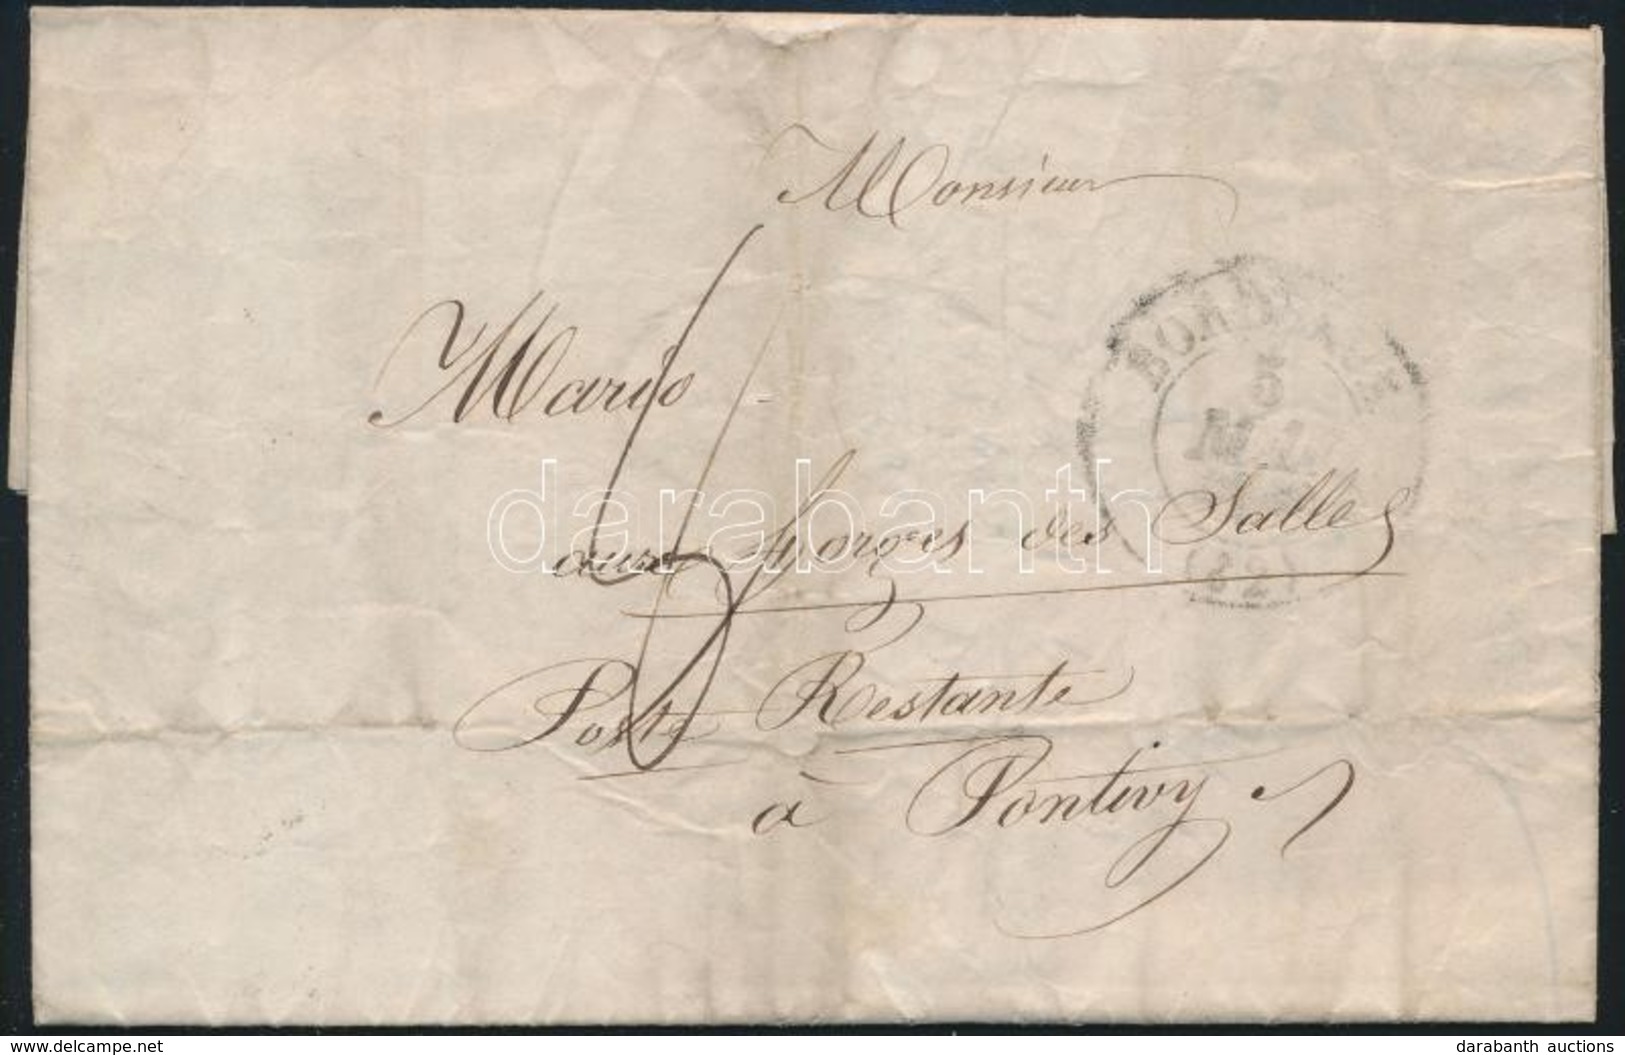 Monsieur
Mario
aux forges des Salles
Poste Restante
à Pontivy
BORDEAUX
5
MAI
(32)
darabanth
www.delcampe.net
darabanth auctions